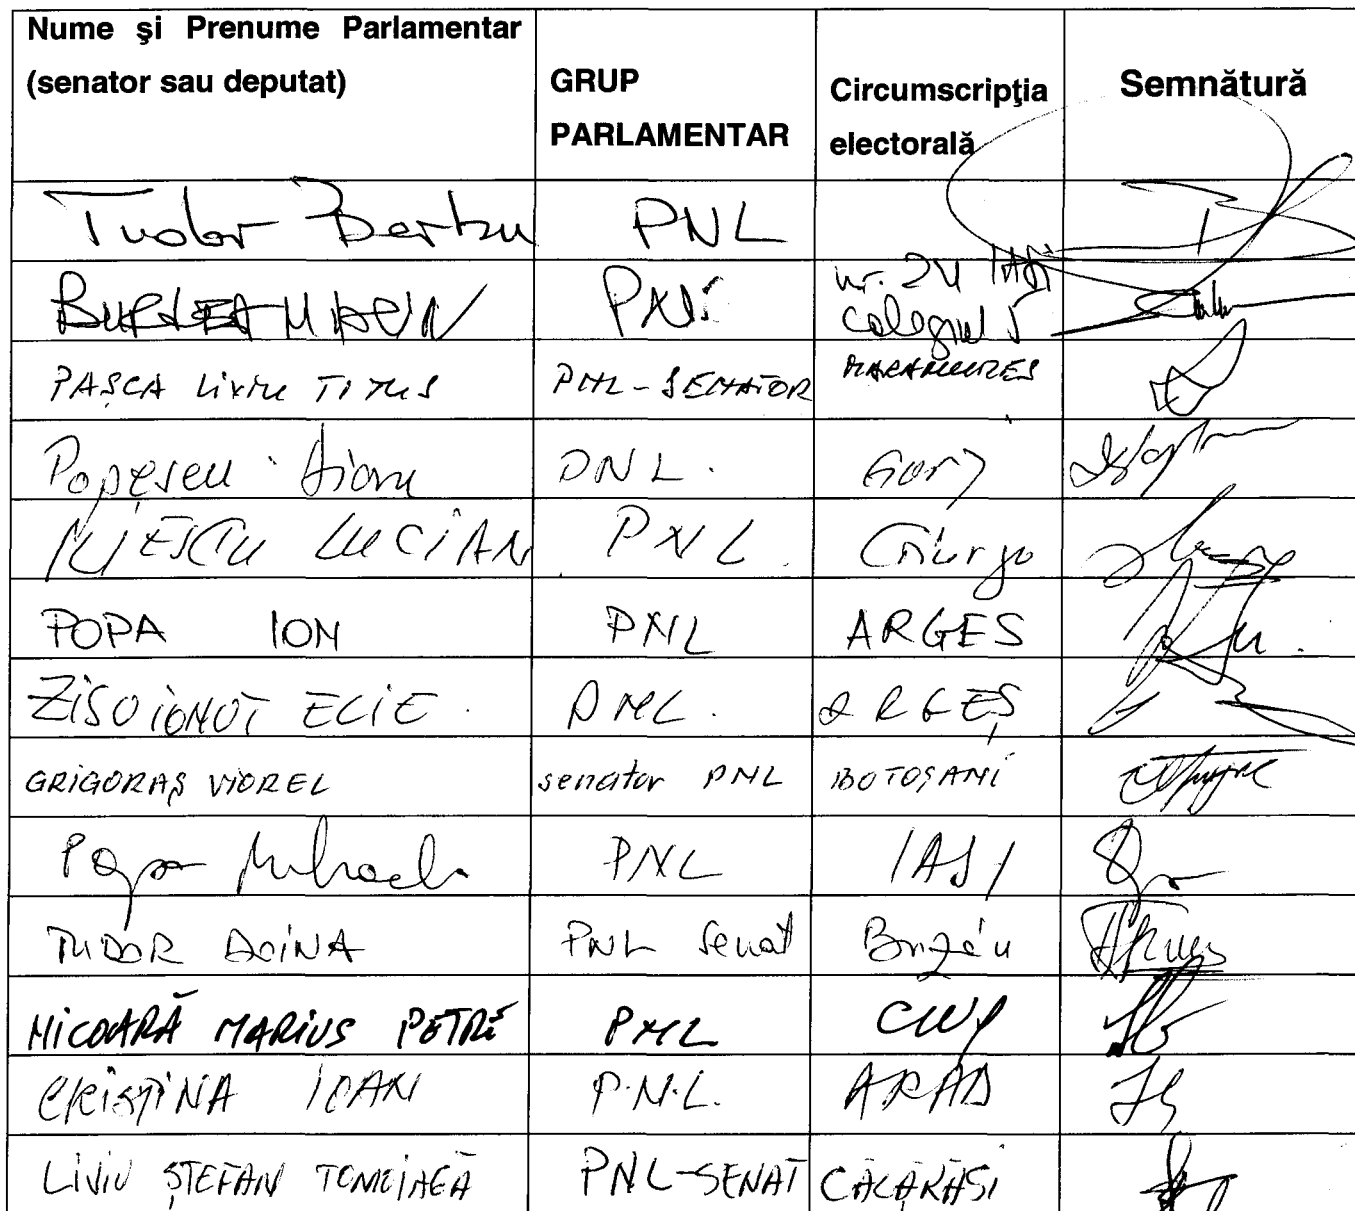 Nume şi Prenume Parlamentar
(senator sau deputat)
GRUP
PARLAMENTAR
Circumscripţia
electorală
Semnătură
Tudor PNL
BURLEA MARIN PNL nr. 24 IAȘI
colegiul 5
PAȘCA LIVIU TITUS PNL-SENATOR MARAMUREȘ
Popescu PNL. Gorj
ILIESCU LUCIAN PNL Giurgiu
POPA ION PNL ARGES
PNL. ARGEȘ
GRIGORAȘ VIOREL senator PNL BOTOȘANI
Popa Mihaela PNL IAȘI
TUDOR DOINA PNL Senat Buzău
NICOARĂ MARIUS PETRE PNL CLUJ
CRISTINA IOAN P.N.L. ARAD
LIVIU ȘTEFAN TOMOIAGĂ PNL-SENAT CĂLĂRĂSI